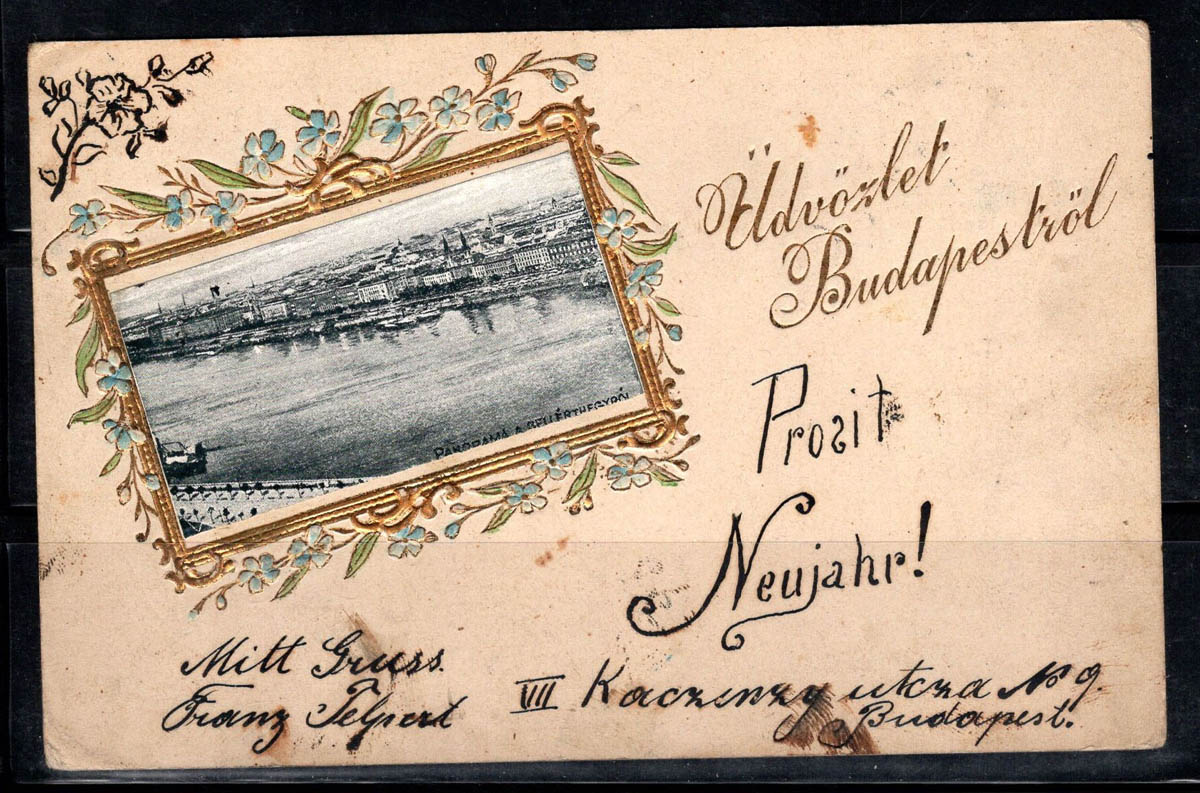 Üdvözlet
Budapestről
PANORAMA A GELLÉRTHEGYRŐL
Prosit
Neujahr!
Mitt Gruss.
Franz
VII Kaczinzy utcza No 9.
Budapest.